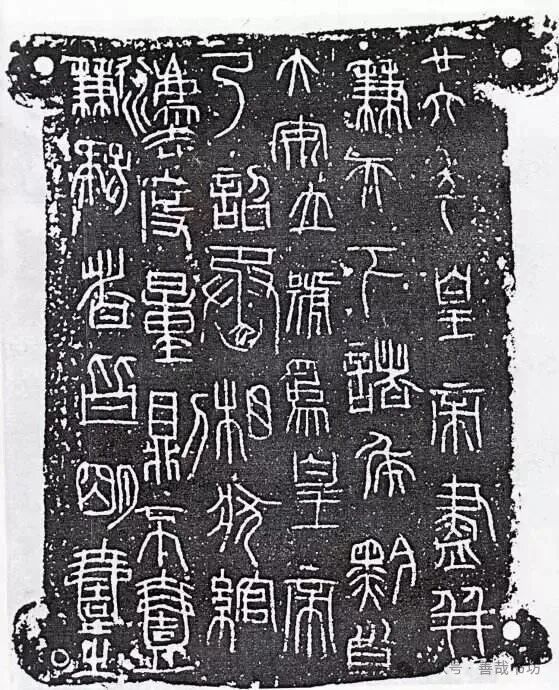 廿六年皇帝盡并
兼天下諸侯黔首
大安立號爲皇帝
乃詔丞相狀綰
灋度量則不壹
歉疑者皆明壹之
号·善哉书坊